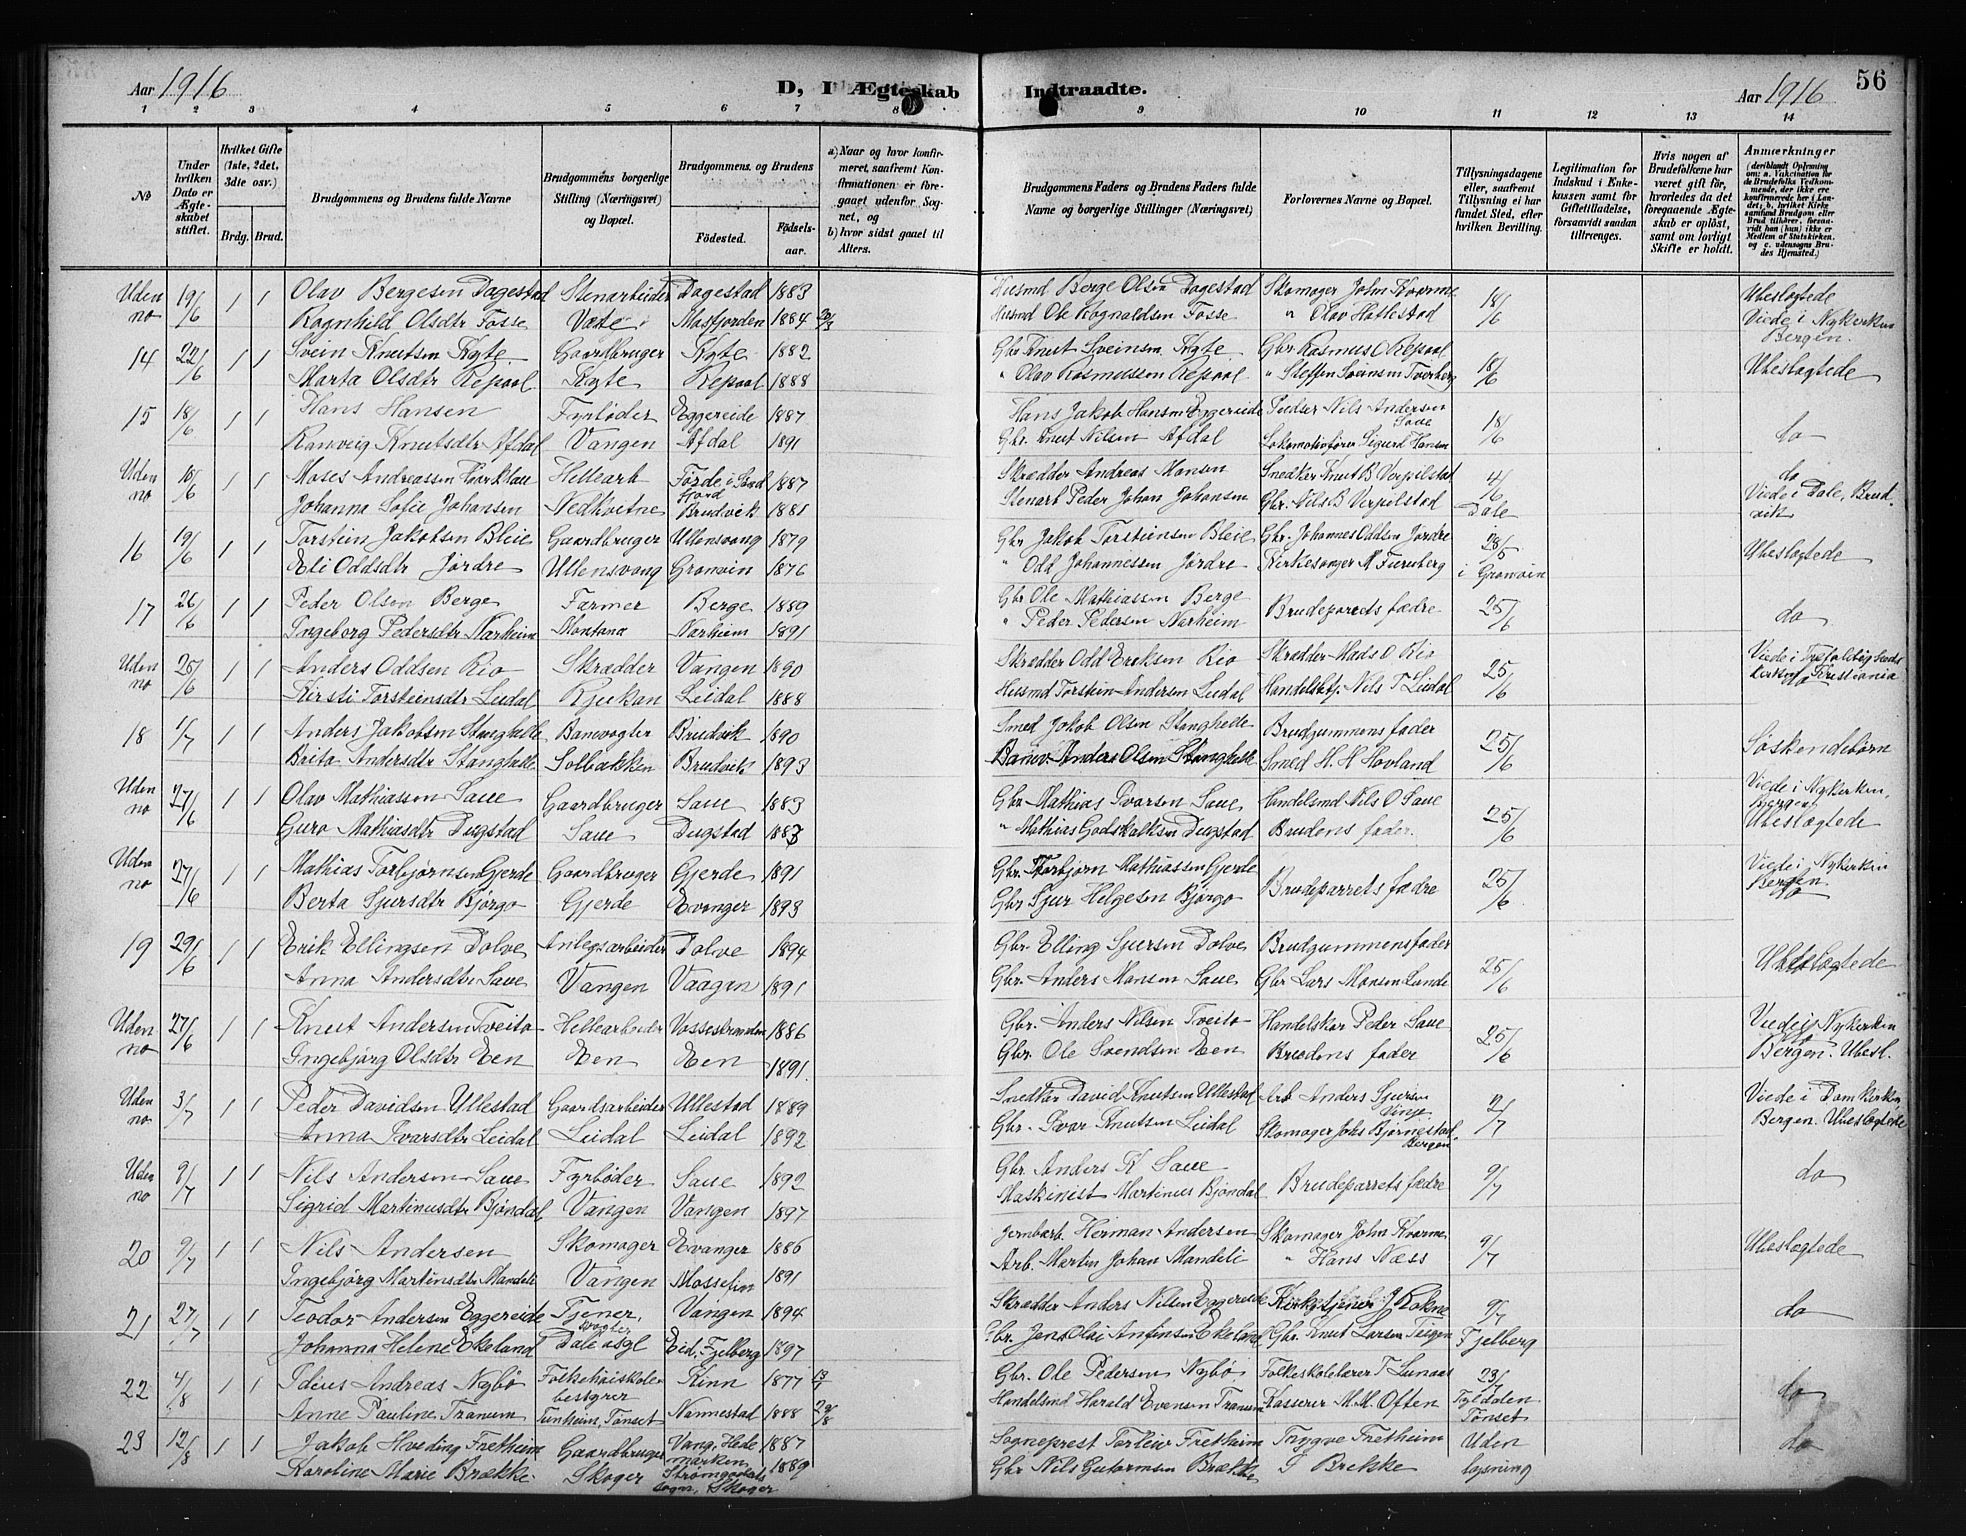 Aar 1916
D, I Ægteskab
Indtraadte.
Aar 1916
56
1 2 3 4 5 6 7 8
9 10 11 12 13 14
No
Under hvilken Dato er Ægteskabet stiftet.
Hvilket Gifte (1ste, 2det, 3die osv.)
Brdg. Brud.
Brudgommens og Brudens fulde Navne
Brudgommens borgerlige Stilling (Næringsvei) og Bopæl.
Brudgommens og Brudens
Fødested.
Fødselsaar.
a) Naar og hvor konfirmeret, saafremt Konfirmationen er foregaaet udenfor Sognet, og
b) hvor sidst gaaet til Alters.
Brudgommens Faders og Brudens Faders fulde Navne og borgerlige Stillinger (Næringsvei)
Forlovernes Navne og Bopæl.
Tillysningsdagene eller, saafremt Tillysning ei har fundet Sted, efter hvilken Bevilling.
Legitimation for Indskud i Enkekassen samt for Giftetilladelse, forsaavidt saadan tiltrænges.
Hvis nogen af Brudefolkene har været gift før, hvorledes da det foregaaende Ægteskab er opløst, samt om lovligt Skifte er holdt.
Anmærkninger
Uden no 19/6 1 1 Olav Bergesen Dagestad Stenarbeider Dagestad 1883 Husmd Berge Olsen Dagestad Skomager John Kvarme 18/6 Ubeslægtede
Ragnhild Olsdtr Fosse Væte Masfjorden 1884 Husmd Ole Ragnaldsen Fosse " Olav Hattestad Viede i Nykirken Bergen.
14 22/6 1 1 Svein Knutsen Kyte Gaardbruger Kyte 1882 Gbr Knut Sveinsen Kyte Gbr Rasmus O Repaal 18/6 Ubeslægtede
Marta Olsdtr Repaal Kyte Repaal 1888 " Olav Rasmussen Repaal " Steffen Sveinsen Tverberg
15 18/6 1 1 Hans Hansen Fyrbøder Eggereide 1887 Hans Jakob Hansen Eggereide Pudser Nils Andersen Saue 18/6 do
Ranveig Knutsdtr Afdal Vangen Afdal 1891 Gbr. Knut Nilsen Afdal Lokomotivfører Sigurd Hansen
Uden no 10/6 1 1 Moses Andreassen Hellearb Førde i Søndfjord 1887 Skrædder Andreas Monsen Snedker Knut B Verpelstad 4/6 Dale do
Johanna Sofie Johansen Nedkvitne Brudvik 1881 Stenarb Peder Johan Johansen Gbr. Nils B Verpelstad Viede i Dale, Brudvik
16 19/6 1 1 Torstein Jakobsen Bleie Gaardbruger Ullensvang 1879 Gbr Jakob Torsteinsen Bleie Gbr. Johannes Oddsen Jørdre 28/5 i Granvin Ubeslægtede
Eli Oddsdtr Jørdre Ullensvang Granvin 1876 " Odd Johannessen Jørdre Kirkesanger M Furuberg
17 26/6 1 1 Peder Olsen Berge Farmer Berge 1889 Gbr Ole Mathiassen Berge Brudeparrets fædre 25/6 do
Ingeborg Pedersdtr Nærheim Montana Nærheim 1891 " Peder Pedersen Nærheim
Uden no 25/6 1 1 Anders Oddsen Rio Skrædder Vangen 1890 Skrædder Odd Eriksen Rio Skrædder Mads O Rio 25/6 Viede i Trefoldighedskirken Kristiania
Kirsti Torsteinsdtr Leidal Rjukan Leidal 1888 Husmd Torstein Andersen Leidal Handelsbetj. Nils T Leidal do
18 1/7 1 1 Anders Jakobsen Stanghelle Banevogter Brudvik 1890 Smed Jakob Olsen Stanghelle Brudgummens fader 25/6 Søskendebørn
Brita Andersdtr Stanghelle Solbakken Brudvik 1893 Banev. Anders Olsen Stanghelle Smed H. H Hovland
Uden no 27/6 1 1 Olav Mathiassen Saue Gaardbruger Saue 1883 Gbr Mathias Ivarsen Saue Handelsmd Nils O Saue 25/6 Viede i Nykirken, Bergen
Guro Mathiasdtr Dugstad Saue Dugstad 1883 " Mathias Godskalksen Dugstad Brudens fader Ubeslægtede
Uden no 27/6 1 1 Mathias Torbjørnsen Gjerde Gaardbruger Gjerde 1891 Gbr. Torbjørn Mathiassen Gjerde Brudeparrets fædre 25/6 Viede i Nykirken Bergen
Berta Sjursdtr Bjørgo Gjerde Evanger 1893 Gbr Sjur Helgesen Bjørgo do
19 29/6 1 1 Erik Ellingsen Dolve Anlegsarbeider Dolve 1894 Gbr. Elling Sjursen Dolve Brudgummens fader 25/6 Ubeslægtede
Anna Andersdtr Saue Vangen Vaagen 1891 Gbr. Anders Monsen Saue Gbr Lars Monsen Lunde
Uden no 27/6 1 1 Knut Andersen Tveito Hellearbeider Vossestranden 1886 Gbr. Anders Nilsen Tveito Handelskar Peder Saue 25/6 Viede i Nykirken
Ingebjørg Olsdtr Een Een Een 1891. Gbr. Ole Svendsen Een Brudens fader Bergen. Ubesl.
Uden no 3/7 1 1 Peder Davidsen Ullestad Gaardsarbeider Ullestad 1889 Snedker David Knutsen Ullestad Arb Anders Sjursen Vinje 2/7 Viede i Domkirken
Anna Ivarsdtr Leidal Leidal Leidal 1892 Gbr. Ivar Knutsen Leidal Skomager Johs Bjørnestad, Bergen Bergen. Ubeslægtede
Uden no 9/7 1 1 Nils Andersen Saue Fyrbøder Saue 1892 Gbr. Anders K Saue Brudeparrets fædre 9/7 do
Sigrid Martinusdtr Bjøndal Vangen Vangen 1897 Maskinist Martinus Bjøndal
20 9/7 1 1 Nils Andersen Skomager Evanger 1886 Jernbarb. Herman Andersen Skomager John Kvarme 9/7 Ubeslægtede
Ingebjørg Martinsdtr Mandeli Vangen 1891 Arb. Martin Johan Mandeli " Hans Næss
21 27/7 1 1 Teodor Andersen Eggereide Tjener, Vangen 1894 Skrædder Anders Nilsen Eggereide Kirketjener J Rokne 9/7 do
Johanna Helene Ekeland Dale Eid, Fjelberg 1897 Gbr. Jens Olai Anfinsen Ekeland Gbr. Knut Larsen Teigen Fjelberg
22 4/8 1 1 Andreas Nybø Folkehøiskolebestyrer Kinn 1877 Gbr. Ole Pedersen Nybø Folkeskolelærer T Lunaas 23/7 do
Anne Pauline Tranum Tunheim, Tønset Nannestad 1888 Handelsmd Harald Evensen Tranum Kasserer M. M. Often Tyldalen Tønset
23 12/8 1 1 Jakob Hveding Fretheim Gaardbruger Vang, Hedemarken 1887 Sogneprest Torleiv Fretheim Trygve Fretheim Uden do
Karoline Marie Brække Skoger Strømgodsets sogn, Skoger 1889 Gbr Nils Gutormsen Brække T Brekke lysning